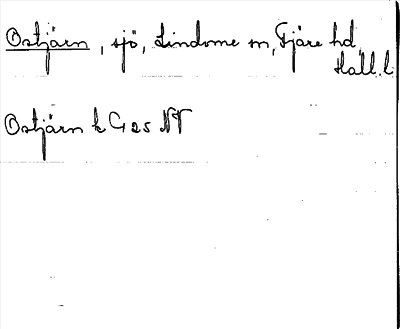 Ostjärn, sjö, Lindome sn, Fjäre hd
Hall. l.
Ostjärn k G 25 NV